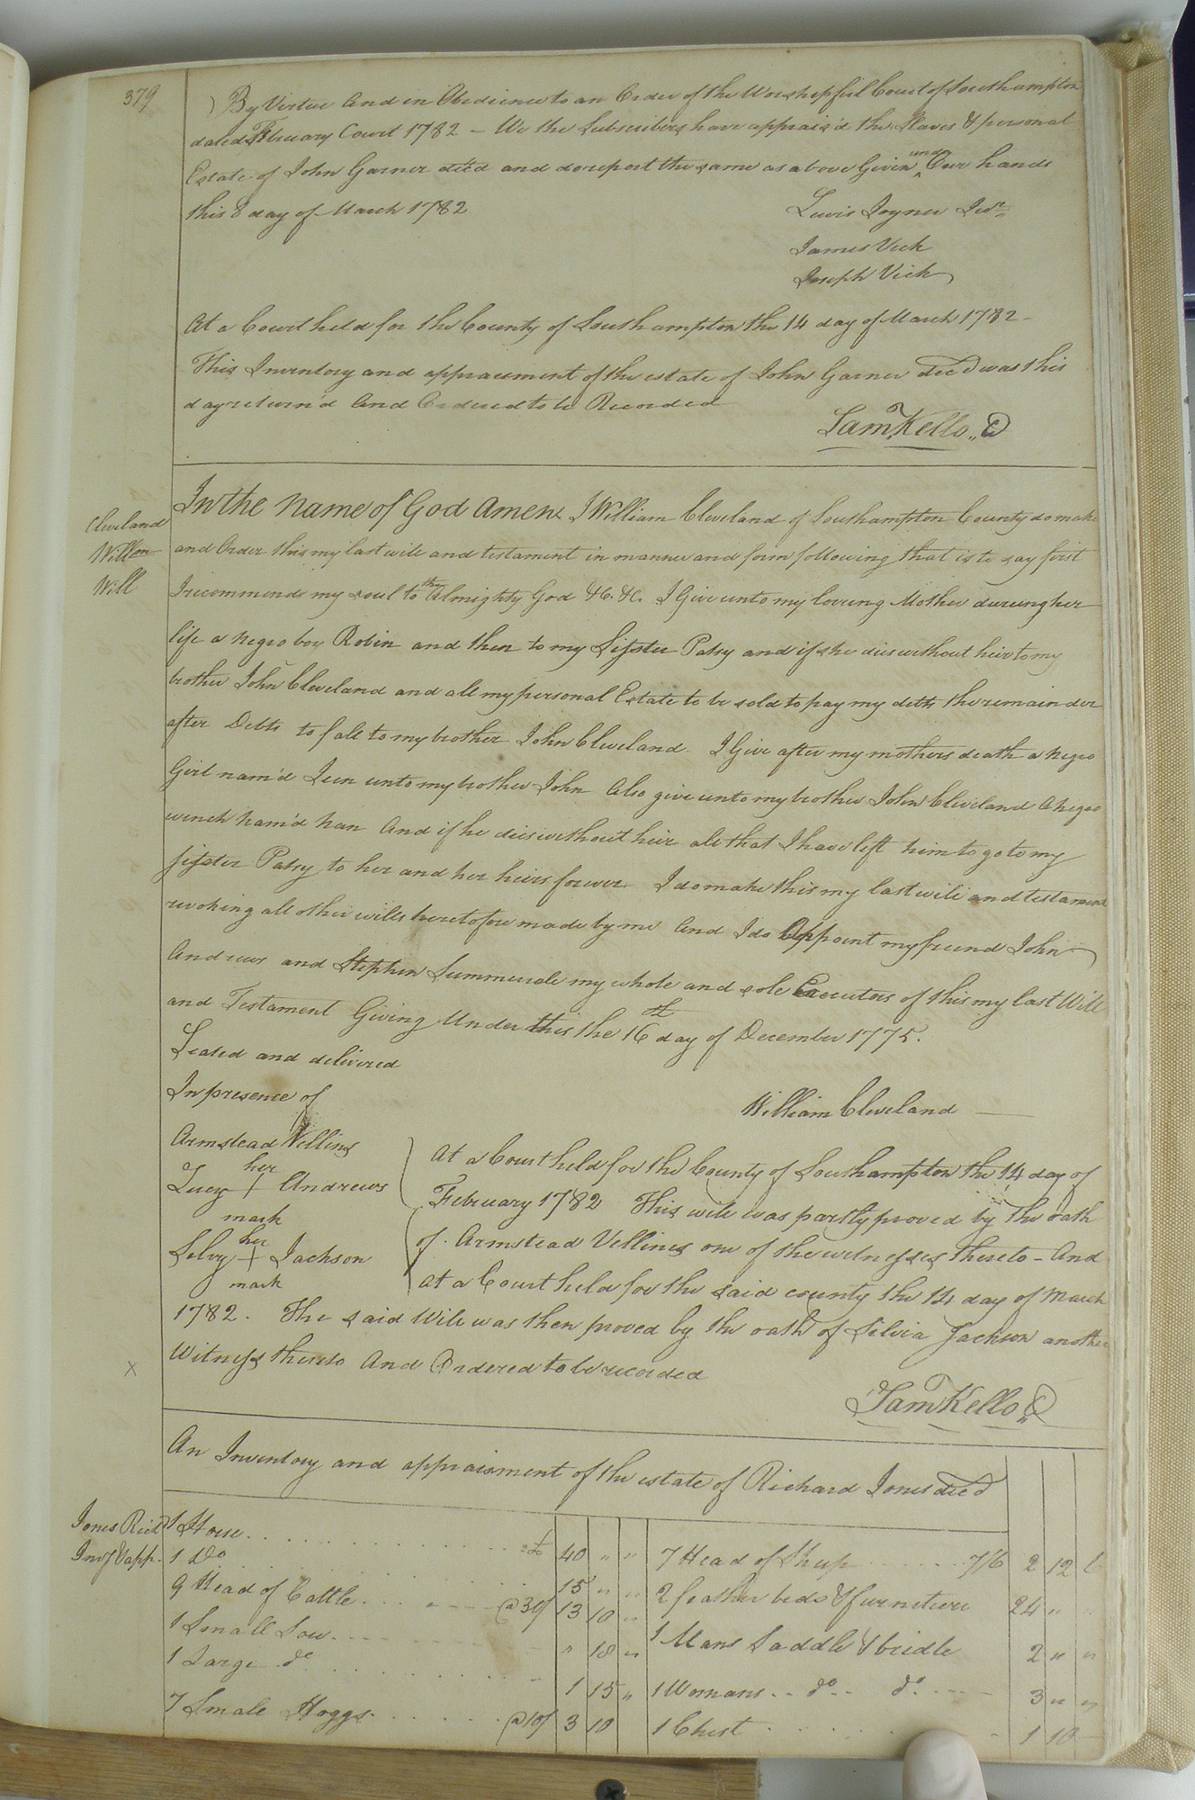 379
By Virtue And in Obedience to an Order of the Worshipful Court of Southampton
dated February Court 1782 - We the Subscribers have apprais'd the Slaves & personal
Estate of John Garner decd and do report the same as above Given under Our hands
this 8 day of March 1782
Lewis Joyner Junr
James Vick
Joseph Vick
At a Court held for the County of Southampton the 14 day of March 1782 -
This Inventory and appraisment of the estate of John Garner decd was this
day return'd And Ordered to be Recorded
Saml Kello C
Cleveland
Willm
Will
In the Name of God Amen I William Cleveland of Southampton County do make
and Order this my last will and testament in manner and form following that is to say first
I recommend my soul to the Almighty God &C. &C. I Give unto my loving Mother during her
life a negro boy Robin and then to my Sisster Patsy and if she dies without heir to my
brother John Cleveland and all my personal Estate to be sold to pay my debts the remainder
after Debts to fall to my brother John Cleveland. I Give after my mothers death a negro
Girl nam'd Jeen unto my brother John Also give unto my brother John Cleveland A negro
wench Nam'd Nan And if he dies without heir all that I have left him to go to my
sisster Patsy to her and her heirs forever I do make this my last will and testament
revoking all other wills heretofore made by me And I do Appoint my friend John
Andrews and Stephen Summerele my whole and sole Executors of this my last Will
and Testament Giving Under this the 16th day of December 1775.
Sealed and delivered
In presence of
William Cleveland
Armstead Vellines
her
Lucy + Andrews
mark
her
Silvy + Jackson
mark
At a Court held for the County of Southampton the 14 day of
February 1782 This will was partly proved by the oath
of Armstead Vellines one of the witnesses thereto - And
At a Court held for the said county the 14 day of March
1782. The said Will was then proved by the oath of Silvia Jackson another
Witness thereto And Ordered to be recorded
X
Saml Kello C
An Inventory and appraisment of the estate of Richard Jones decd
Jones Richd
Invy & app.
1 Horse 40 " "
1 Do 15 " "
9 Head of Cattle @ 30/ 13 10 "
1 Small Sow " 18 "
1 Large do 1 15 "
7 Small Hoggs @ 10/ 3 10
7 Head of Sheep 7/6 2 12 6
2 feather beds & furniture 24 " "
1 Mans Saddle & bridle 2 " "
1 Womans do do 3 " "
1 Chest 1 10